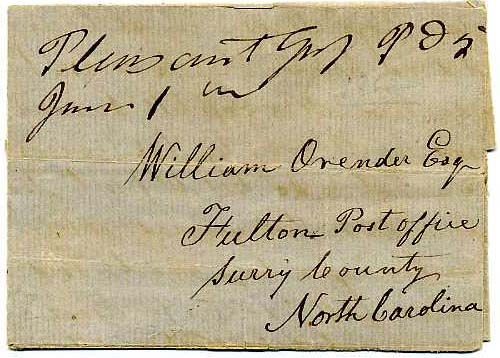 Pleasant Gap Pd 5
June 1
William Orender Esqr
Fulton Post office
Surry County
North Carolina